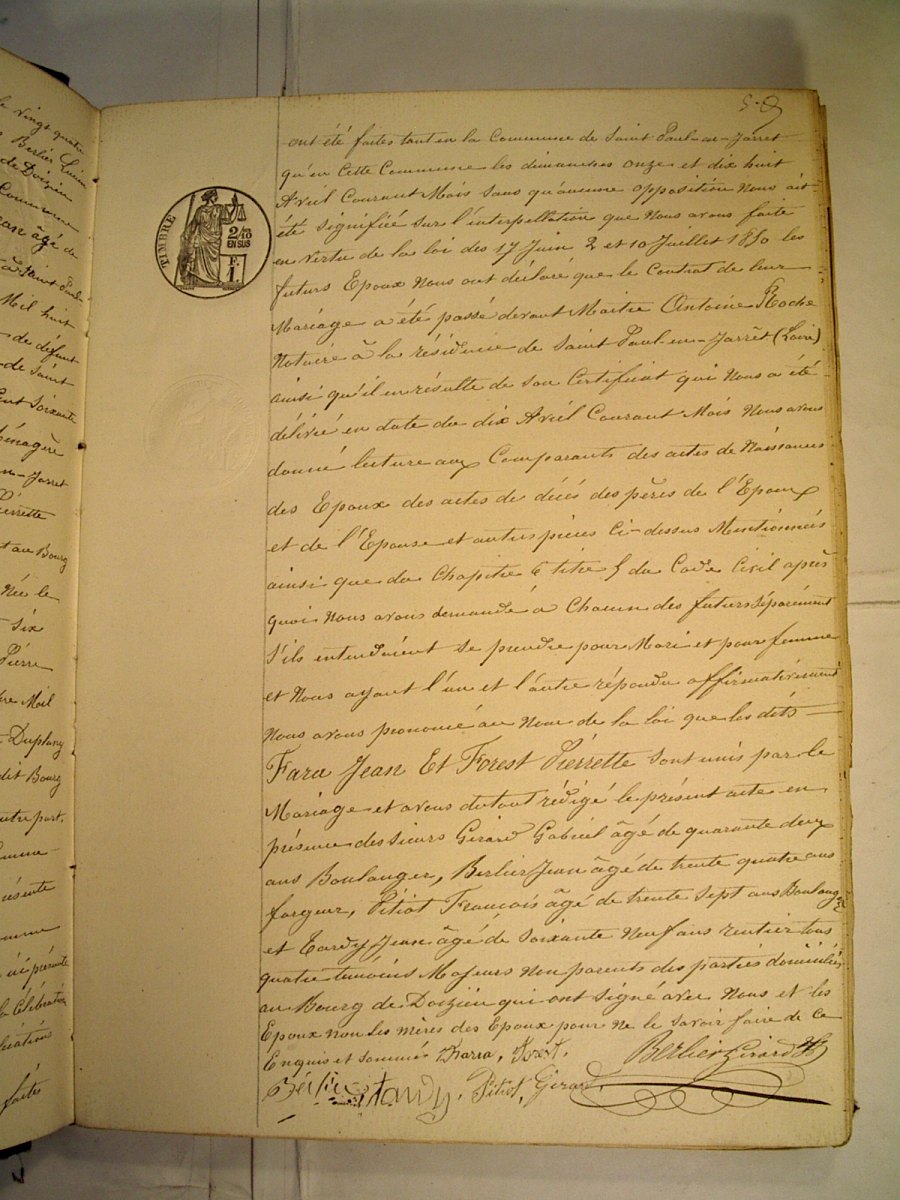 le vingt quatre
Berlier
de Doizieu
Commune
Jean âgé de
à Saint Paul
Mil huit
de défunt
de Saint
Soixante
Ménagère
en-Jarret
Pierrette
au Bourg
Née le
Six
Pierre
Mil
Duplany
dit Bourg
autre part.
présente
comme
la célébration
faites
TIMBRE
2/10
EN SUS
F.
1.
ont été faites tant en la Commune de Saint Paul-en-Jarret
qu'en Cette Commune les dimanches onze et dix huit
Avril Courant Mois Sans qu'aucune opposition Nous ait
été Signifiée Sur l'interpellation que Nous avons faite
en vertu de la loi des 17 Juin & et 10 Juillet 1850 les
futurs Epoux Nous ont déclaré que le Contrat de leur
Mariage a été passé devant Maitre Antoine Roche
Notaire à la résidence de Saint Paul-en-Jarrêt (Loire)
ainsi qu'il en résulte de son Certificat qui Nous a été
délivré en date du dix Avril Courant Mois Nous avons
donné lecture aux Comparants des actes de Naissances
des Epoux des actes de décés des pères de l'Epoux
et de l'Epouse et autres pièces Ci-dessus Mentionnées
ainsi que du Chapitre 6 titre 5 du Code Civil après
quoi Nous avons demandé à Chacun des futurs Séparément
S'ils entendaient Se prendre pour Mari et pour femme
et Nous ayant l'un et l'autre répondu affirmativement
Nous avons prononcé au Nom de la loi que les dits
Fara Jean Et Forest Pierrette Sont unis par le
Mariage et avons du tout rédigé le présent acte en
présence des Sieurs Girard Gabriel âgé de quarante deux
ans Boulanger, Berlier Jean âgé de trente quatre ans
forgeur, Pitiot François âgé de trente Sept ans Boulanger
et Tardy Jean âgé de Soixante Neuf ans rentier tous
quatre témoins Majeurs Non parents des parties domiciliés
au Bourg de Doizieu qui ont Signé avec Nous et les
Epoux non les mères des Epoux pour ne le Savoir faire de Ce
Enquis et Sommés Farra, Forest. Berlier Girard
tardy. Pitiot, Girard.